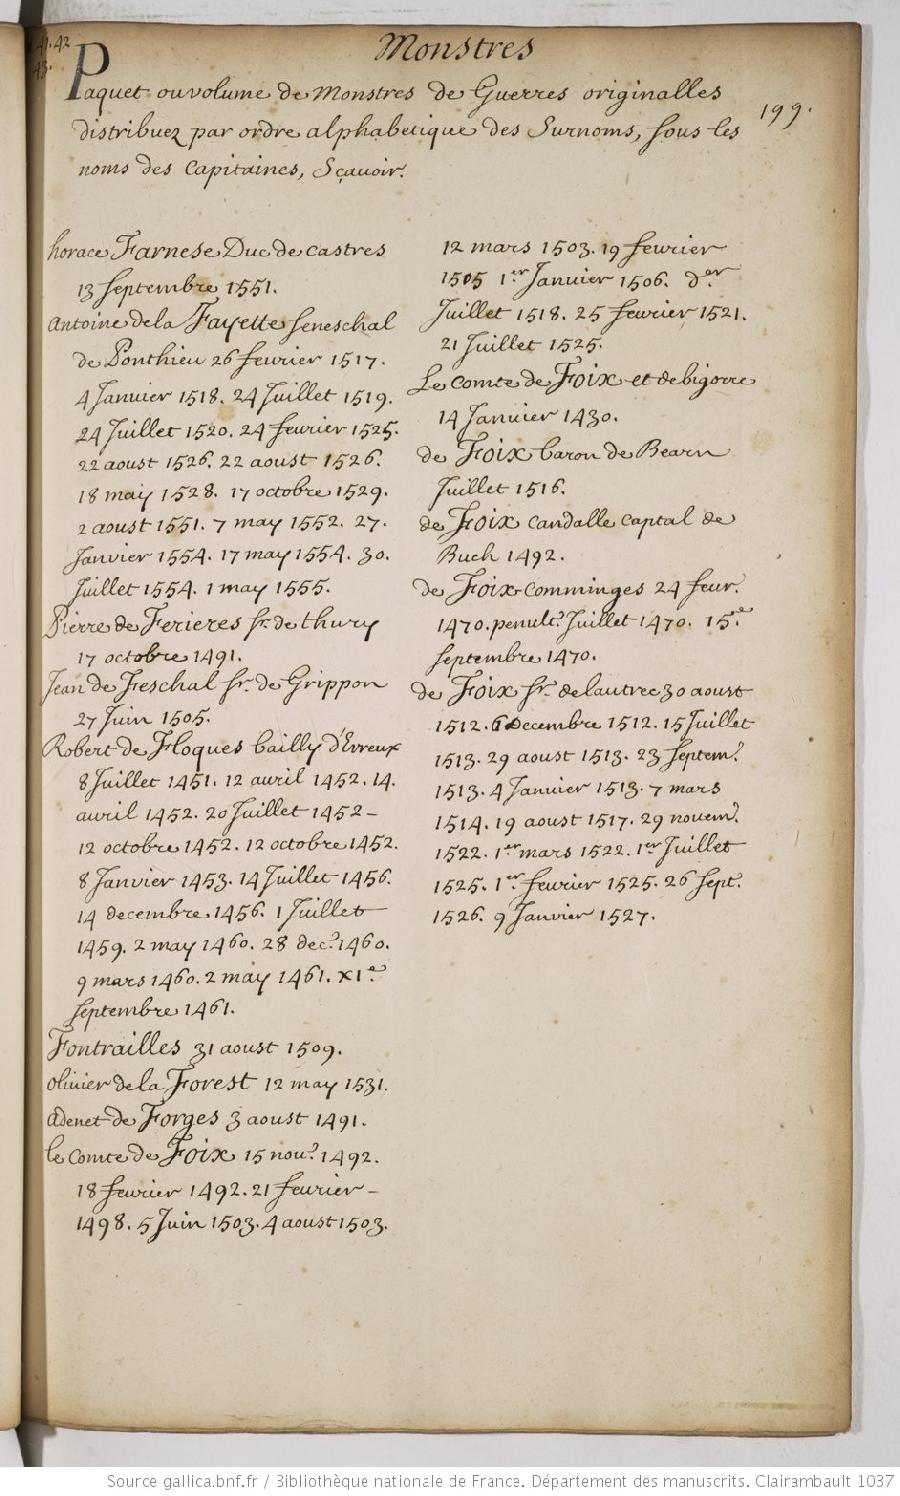 41.42
43.
Monstres
199.
Paquet ou volume de Monstres de Guerres originalles
distribuez par ordre alphabetique des Surnoms, sous les
noms des Capitaines, Sçavoir.
horace Farnese Duc de castres
13 septembre 1551.
Antoine de la Fayette seneschal
de Ponthieu 26 fevrier 1517.
4 Janvier 1518. 24 Juillet 1519.
24 Juillet 1520. 24 fevrier 1525.
22 aoust 1526. 22 aoust 1526.
18 may 1528. 17 octobre 1529.
2 aoust 1551. 7 may 1552. 27.
Janvier 1554. 17 may 1554. 30.
Juillet 1554. 1 may 1555.
Pierre de Ferieres sr. de thury
17 octobre 1491.
Jean de Feschal sr. de Grippon
27 Juin 1505.
Robert de Floques bailly d'Evreux
8 Juillet 1451. 12 avril 1452. 14.
avril 1452. 20 Juillet 1452 –
12 octobre 1452. 12 octobre 1452.
8 Janvier 1453. 14 Juillet 1456.
14 decembre. 1456. 1 Juillet
1459. 2 may 1460. 28 dec.e 1460.
9 mars 1460. 2 may 1461. XI.e
septembre 1461.
Fontrailles 31 aoust 1509.
olivier de la Forest 12 may 1531.
Adenet de Forges 3 aoust 1491.
le Comte de Foix 15 nov.e 1492.
18 fevrier 1492. 21 fevrier –
1498. 5 Juin 1503. 4 aoust 1503.
12 mars 1503. 19 fevrier
1505 1.er Janvier 1506. d.er
Juillet 1518. 25 fevrier 1521.
21 Juillet 1525.
Le comte de Foix et de bigorre
14 Janvier 1430.
de Foix baron de Bearn
Juillet 1516.
de Foix candalle captal de
Buch 1492.
de Foix comminges 24 fevr.
1470. penult.e Juillet 1470. 15.e
septembre 1470.
de Foix sr. de lautrec 30 aoust
1512. 6 decembre 1512. 15 Juillet
1513. 29 aoust 1513. 23 septem.e
1513. 4 Janvier 1513. 7 mars
1514. 19 aoust 1517. 29 novem.e
1522. 1.er mars 1522. 1.er Juillet
1525. 1.er fevrier 1525. 26 sept.
1526. 9 Janvier 1527.
Source gallica.bnf.fr / Bibliothèque nationale de France. Département des manuscrits. Clairambault 1037